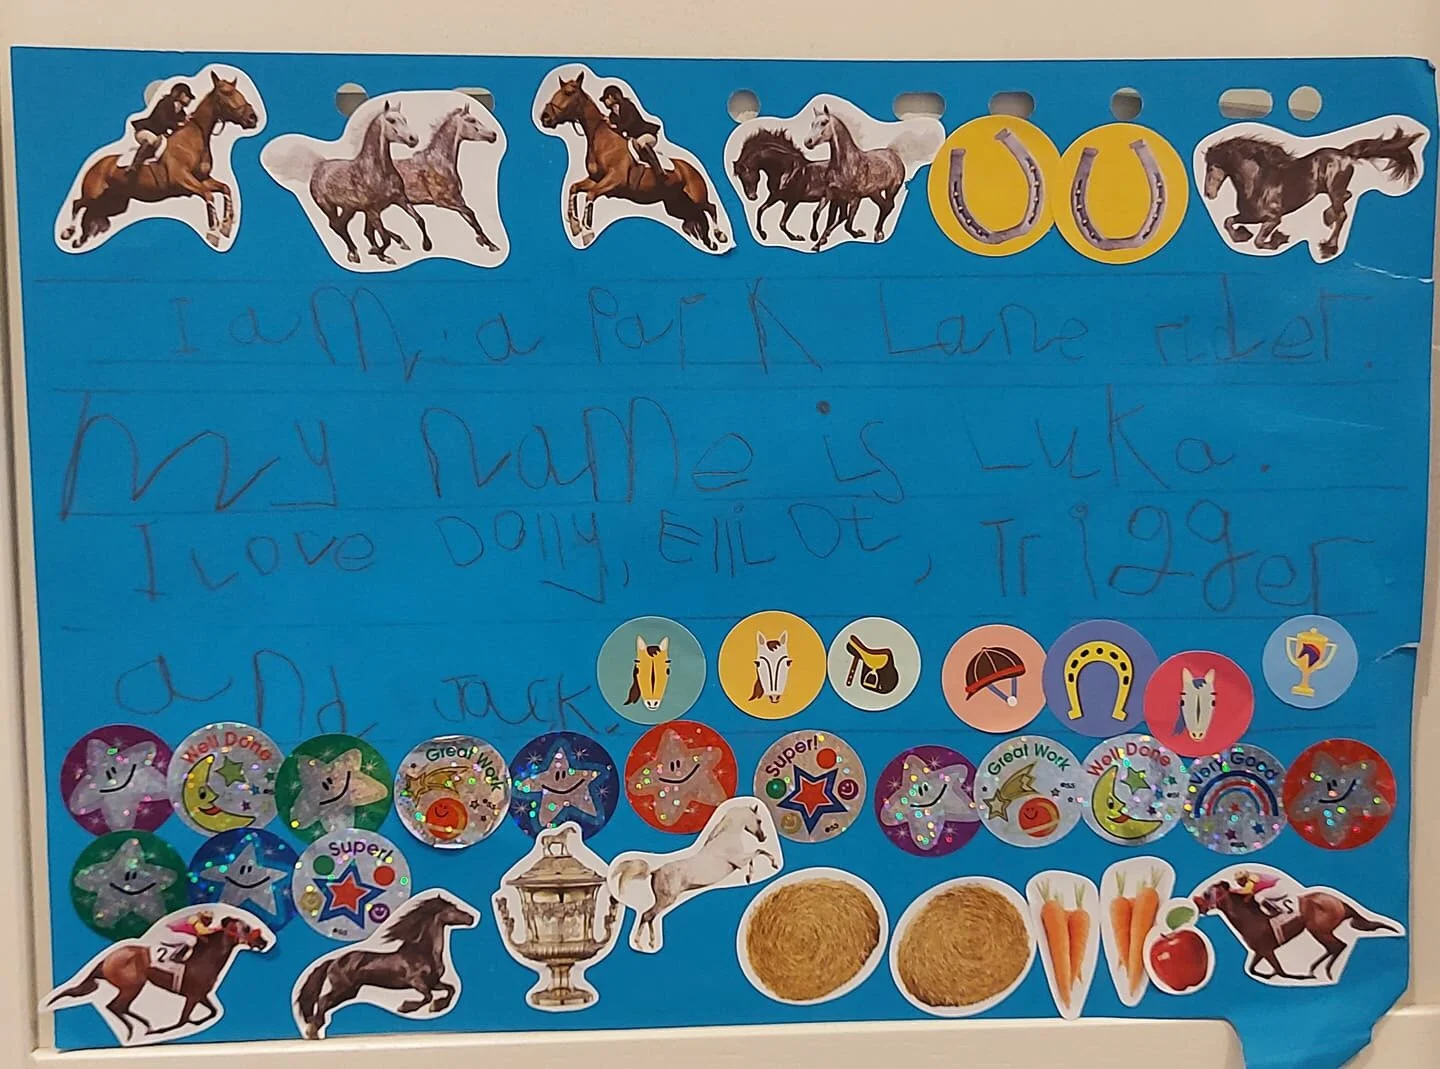 I am a Park Lane rider.
My name is Luka.
I Love Dolly, Elliot, Trigger
and Jack.
Well Done
Great Work
Super!
Great Work
Well Done
Very Good
Super!
2
5